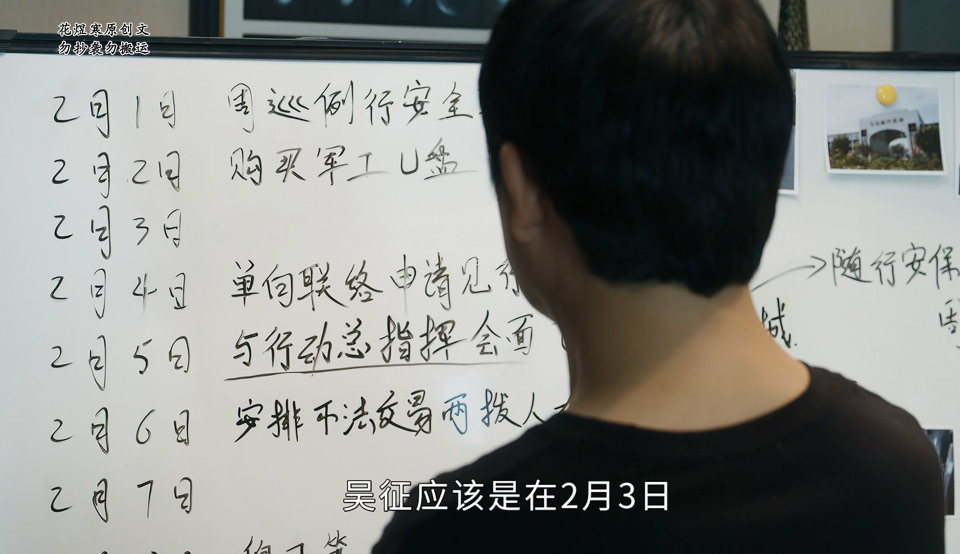 花煜寒原创文
勿抄袭勿搬运
2月1日 周巡例行安全
2月2日 购买军工U盘
2月3日
2月4日 单向联络申请见行
2月5日 与行动总指挥会面
2月6日 安排不法交易两拨人
2月7日
随行安保
城
周
吴征应该是在2月3日